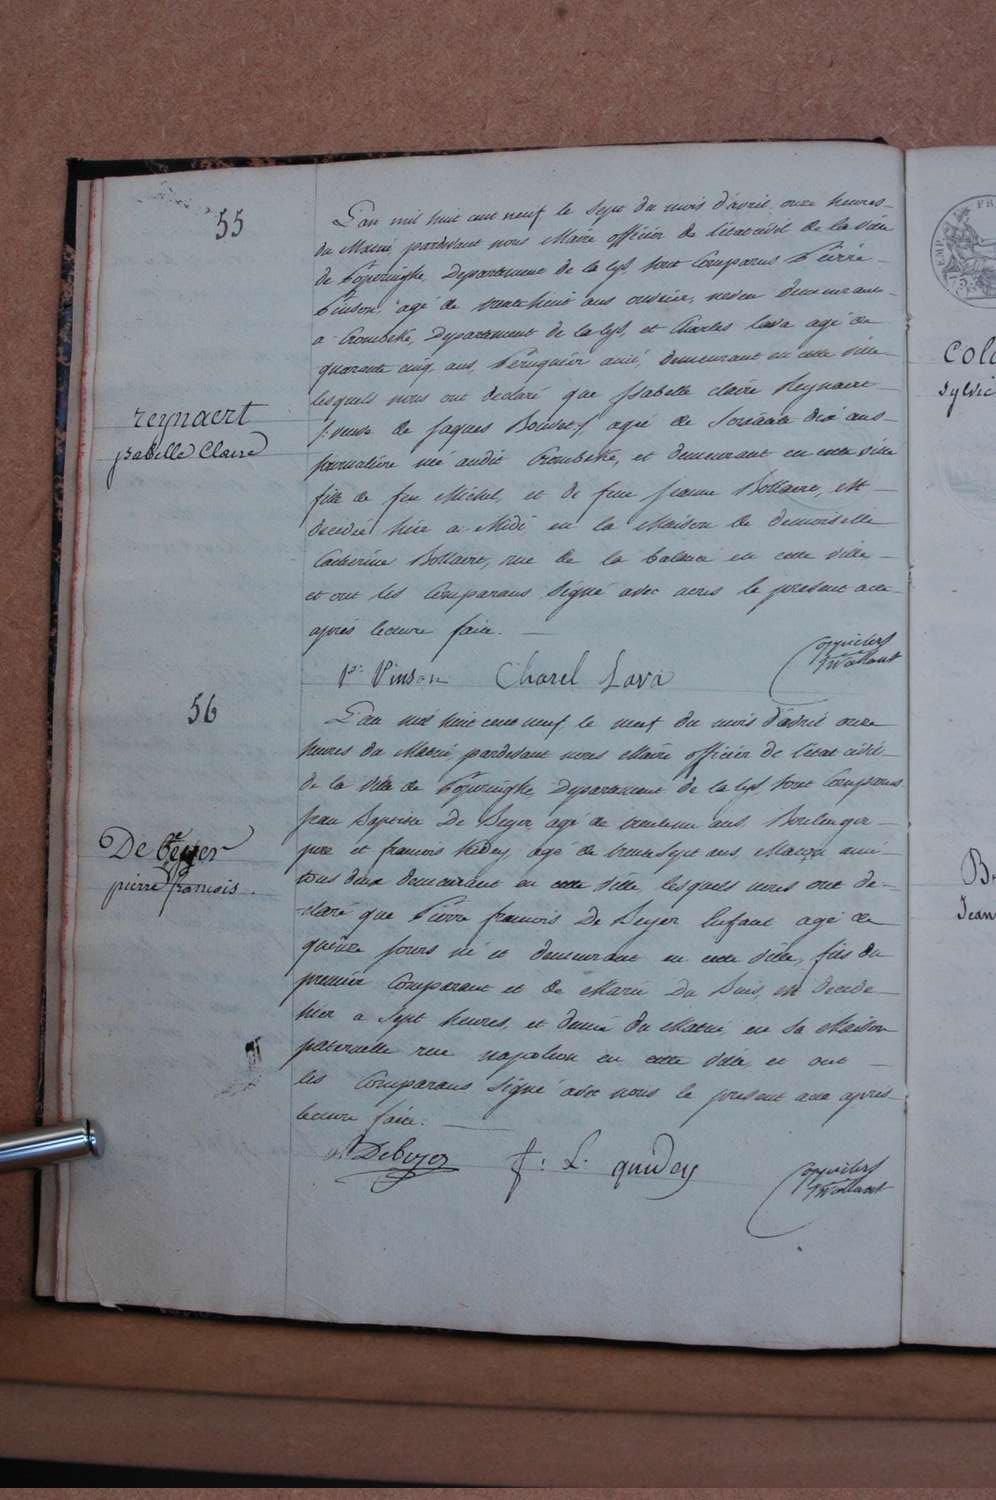 55
L'an mil huit cent neuf le sept du mois d'avril onze heures
du Matin pardevant nous Maire officier de l'état civil de la ville
de Poperinghe, Departement de la lys, sont Comparus Pierre
Vinson agé de trente huit ans ouvrier, demeurant
a Crombeke, Departement de la lys, et Charles Lava agé de
quarante cinq ans, Péruquier ami, demeurant en cette ville
lesquels nous ont declaré que Isabelle claire Reynaert
veuve de Jaques agée de Soixante dix ans
journaliere né audit Crombeke, et demeurant en cette ville
fille de feu Michel, et de feue Jeanne Bollaert, est
decedée hier a Midi en la Maison de demoiselle
Catherine Bollaert, rue de la balance en cette ville
et ont les Comparans Signé avec nous le present acte
après lecture faite.
reynaert
isabelle Claire
pr Vinson Charel Lava
56
L'an mil huit cent neuf, le neuf du mois d'avril onze
heures du Matin, pardevant nous Maire officier de l'état civil
de la ville de Poperinghe, Departement de la lys, sont Comparus
Jean Baptiste De Beyer, agé de trente un ans, Boulenger
pere et francois Kidey agé de trente sept ans, Maçon ami
tous deux demeurant en cette ville, lesquels nous ont de-
-claré que Pierre francois De Beyer Enfant agé de
quinze jours né et demeurant en cette ville, fils du
premier Comparant et de Marie Du Buis, est decedé
hier a Sept heures, et demie du Matin, en sa Maison
paternelle rue napoleon en cette ville, et ont
les Comparans Signé avec nous le present acte après
lecture faite.
De beyer
pierre francois.
Debeyer f: L. quidey
COLA
Sylvie
Jean